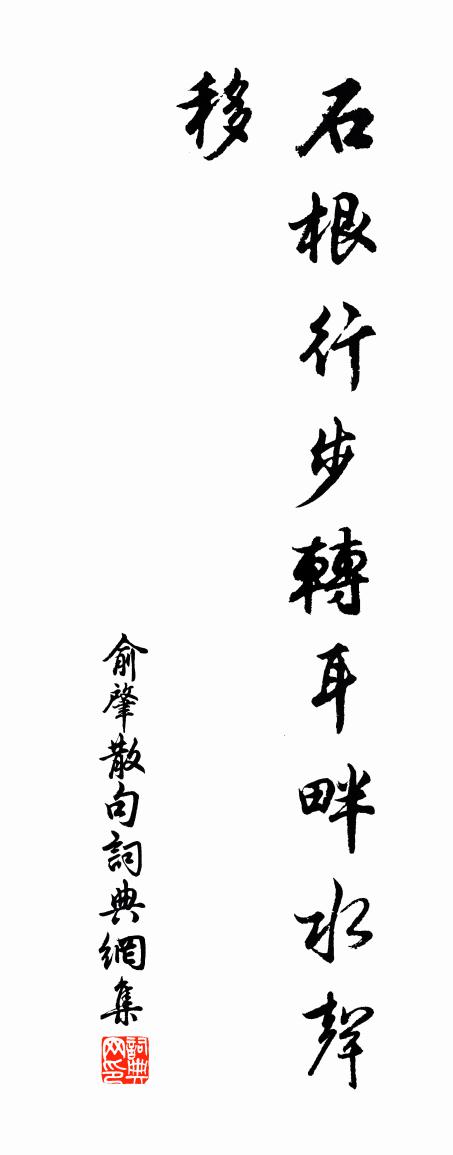 石根行步轉耳畔水聲
移
俞肇散句詞典網集
詞典
网印